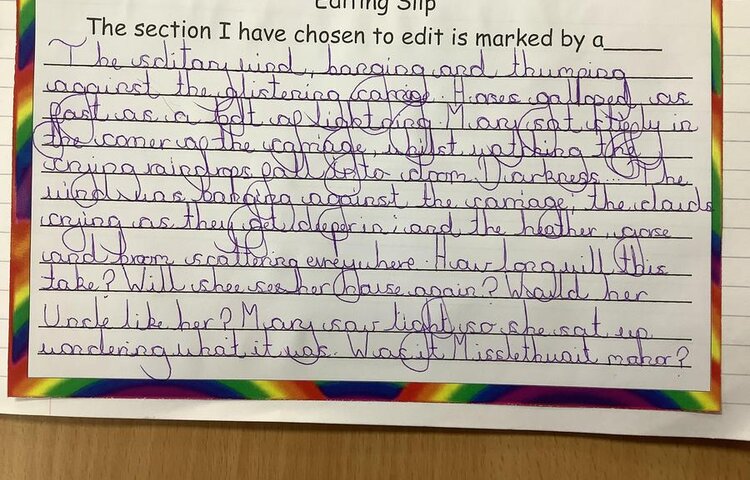 Editing Slip
The section I have chosen to edit is marked by a_____
The solitary wind, banging and thumping
against the glistening carriage. Horses galloped as
fast as a bolt of lightning. Mary sat stiffly in
the corner of the carriage, whilst watching the
crying raindrops fall to doom. Darkness... The
wind was banging against the carriage, the clouds
crying as they get deeper in; and the heather, gorse
and brom scattering everywhere. How long will this
take? Will shee see her house again? Would her
Uncle like her? Mary saw light so she sat up
wondering what it was. Was it Misslethwait manor?